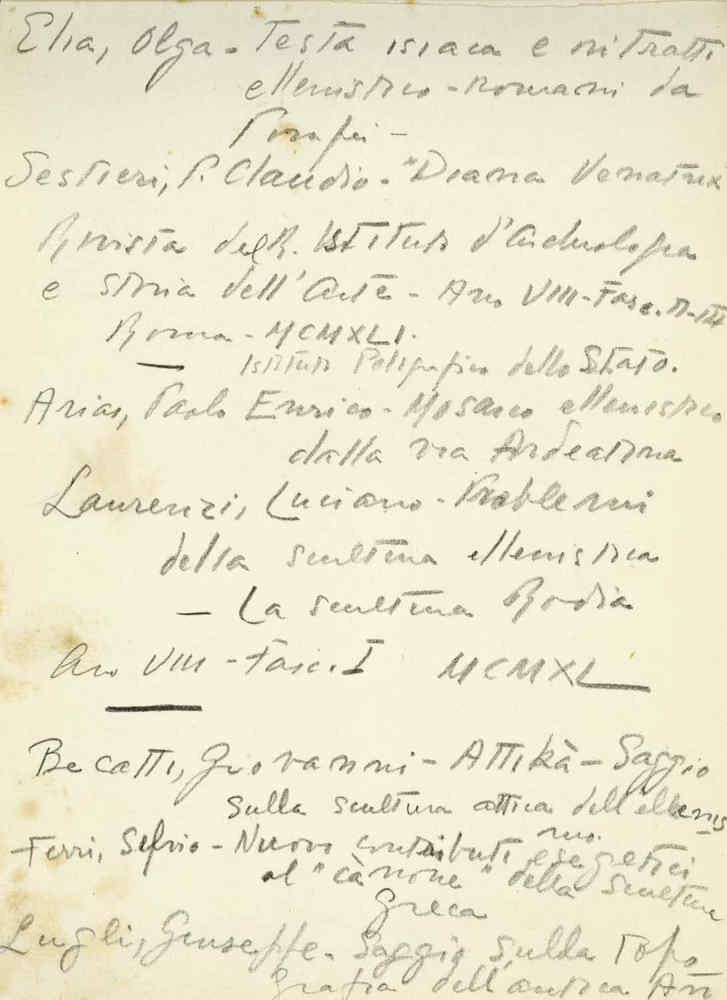 Elia, Olga - Testa isiaca e ritratti
ellenistico-romani da
Pompei -
Sestieri, P. Claudio - "Diana Venatrix
Rivista del R. Istituto d'Archeologia
e storia dell'Arte - Ano VIII - Fasc. II-III
Roma - MCMXLI.
Istituto Poligrafico dello Stato.
Arias, Paolo Enrico - Mosaico ellenistico
dalla via Ardeatina
Laurenzi, Luciano - Problemi
della scultura ellenistica
- La scultura Rodia
Ano VIII - Fasc. I MCMXL
Becatti, Giovanni - Attikà - Saggio
sulla scultura attica dell'ellenis
mo.
Ferri, Silvio - Nuovi contributi esegetici
al "cànone" della scultura
Greca
Lugli, Giuseppe - Saggio sulla Topo
grafia dell'antica An